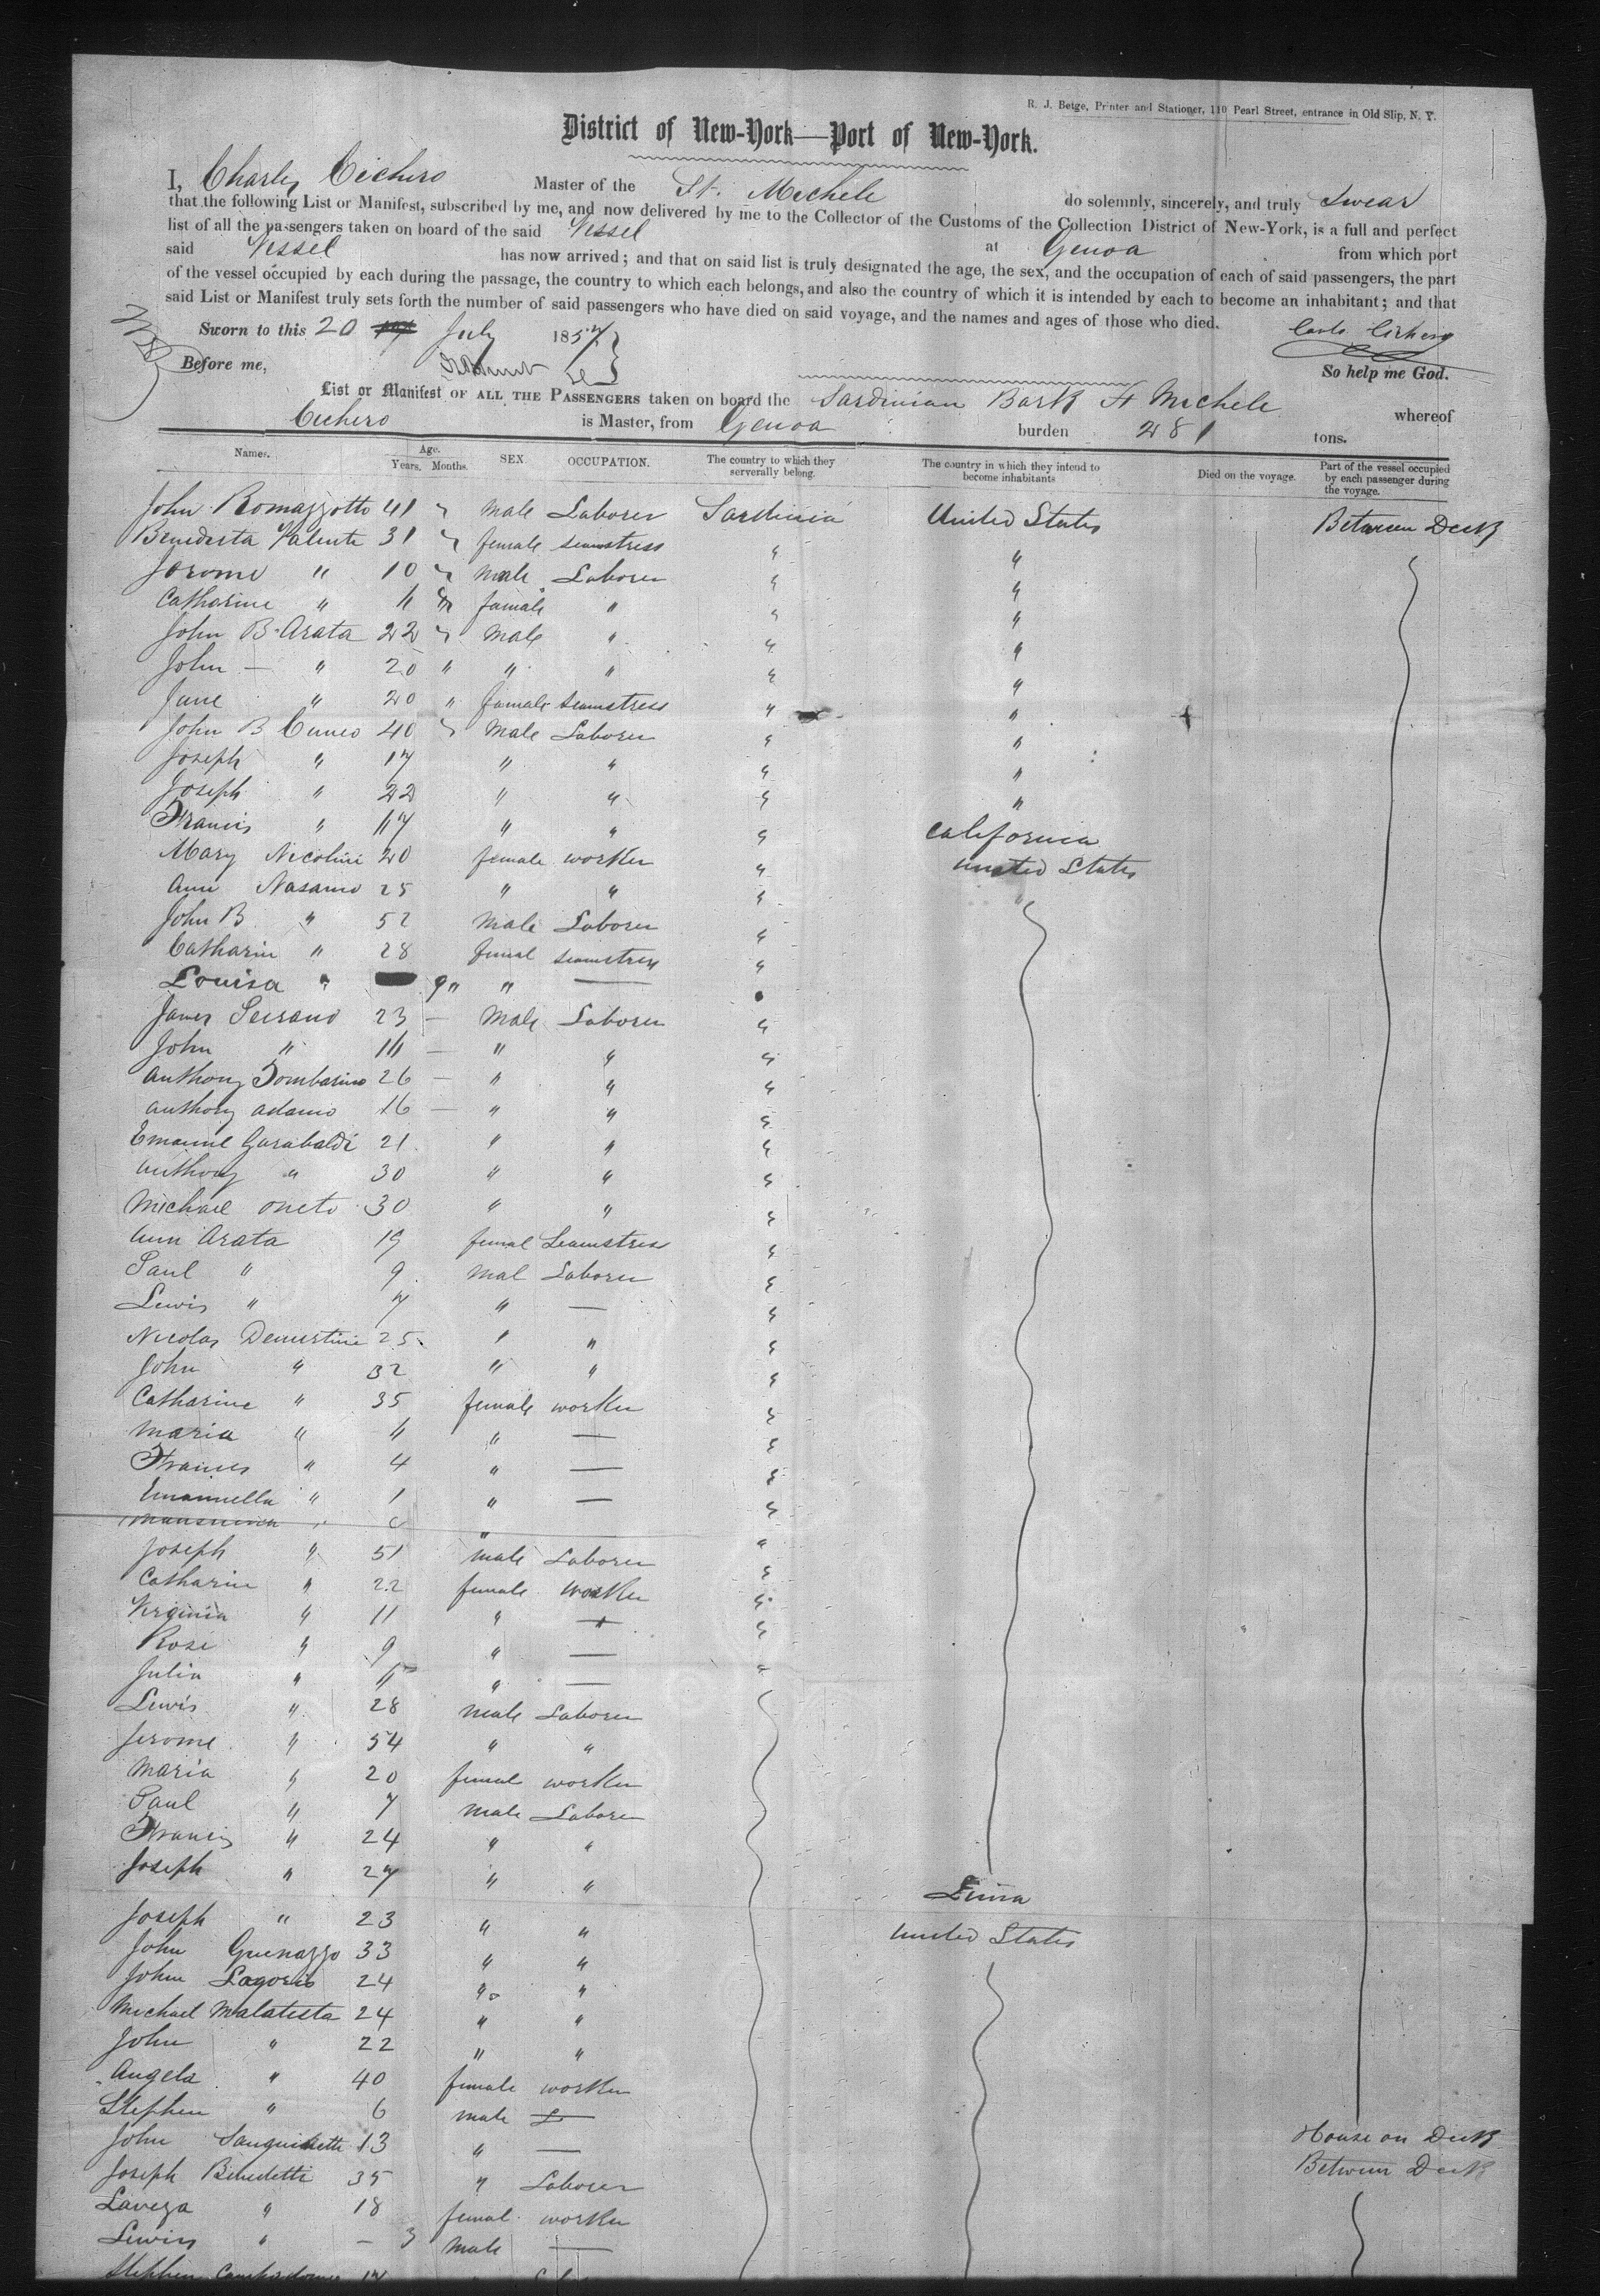 R. J. Betge, Printer and Stationer, 110 Pearl Street, entrance in Old Slip, N. Y.
District of New-York—Port of New-York.
I, Charles Cichero Master of the St. Michele do solemnly, sincerely, and truly Swear
that the following List or Manifest, subscribed by me, and now delivered by me to the Collector of the Customs of the Collection District of New-York, is a full and perfect
list of all the passengers taken on board of the said Vessel at Genoa from which port
said Vessel has now arrived; and that on said list is truly designated the age, the sex, and the occupation of each of said passengers, the part
of the vessel occupied by each during the passage, the country to which each belongs, and also the country of which it is intended by each to become an inhabitant; and that
said List or Manifest truly sets forth the number of said passengers who have died on said voyage, and the names and ages of those who died.
Sworn to this 20 July 1857 Carlo Cichero
Before me, So help me God.
List or Manifest OF ALL THE PASSENGERS taken on board the Sardinian Bark St Michele whereof
Cichero is Master, from Genoa burden 281 tons.
Names. Age. Years. Months. SEX. OCCUPATION. The country to which they serverally belong. The country in which they intend to become inhabitants Died on the voyage. Part of the vessel occupied by each passenger during the voyage.
John Romazzotto 41 " male Laborer Sardinia United States Between Deck
Benedetta Valente 31 " female seamstress " "
Jerome " 10 " male Laborer " "
Catharine " 4 female " " "
John B. Arata 22 " male " " "
John — " 20 " " " " "
Jane " 20 " female seamstress " "
John B Cuneo 40 " male Laborer " "
Joseph " 17 " " " "
Joseph " 22 " " " "
Francis " 17 " " " California
Mary Nicolini 20 female worker " United States
Ann Nasano 25 " " "
John B " 52 male Laborer "
Catharin " 28 femal seamstress "
Louisa " 9 " " —
James 23 — male Laborer "
John " 14 — " " "
Anthony 26 — " " "
Anthony Adamo 16 — " " "
Emanuel Garabaldi 21 " " "
Anthony " 30 " " "
Michael Oneto 30 " " "
Ann Arata 19 femal Seamstress "
Paul " 9 mal Laborer "
Lewis " 7 " — "
Nicolas Demartini 25 " " "
John " 32 " " "
Catharine " 35 female worker "
Maria " 4 " — "
Frances " 4 " — "
Emannuella " 1 " — "
" " "
Joseph " 51 male Laborer "
Catharin " 22 female worker "
Virginia " 11 " — "
Rose " 9 " — "
Julia " " — "
Lewis " 28 male Laborer
Jerome " 54 " "
Maria " 20 femal worker
Paul " 7 male Laborer
Francis " 24 " "
Joseph " 27 " " Lima
Joseph " 23 " " United States
John Guenazzo 33 " "
John Lagorio 24 " "
Michael Malatesta 24 " "
John " 22 " "
Angela " 40 female worker
Stephen " 6 male —
John Sanguinetti 13 " — House on Deck
Joseph Benedetti 35 " Laborer Between Deck
" 18 femal worker
Lewis " — 3 male —
Stephen